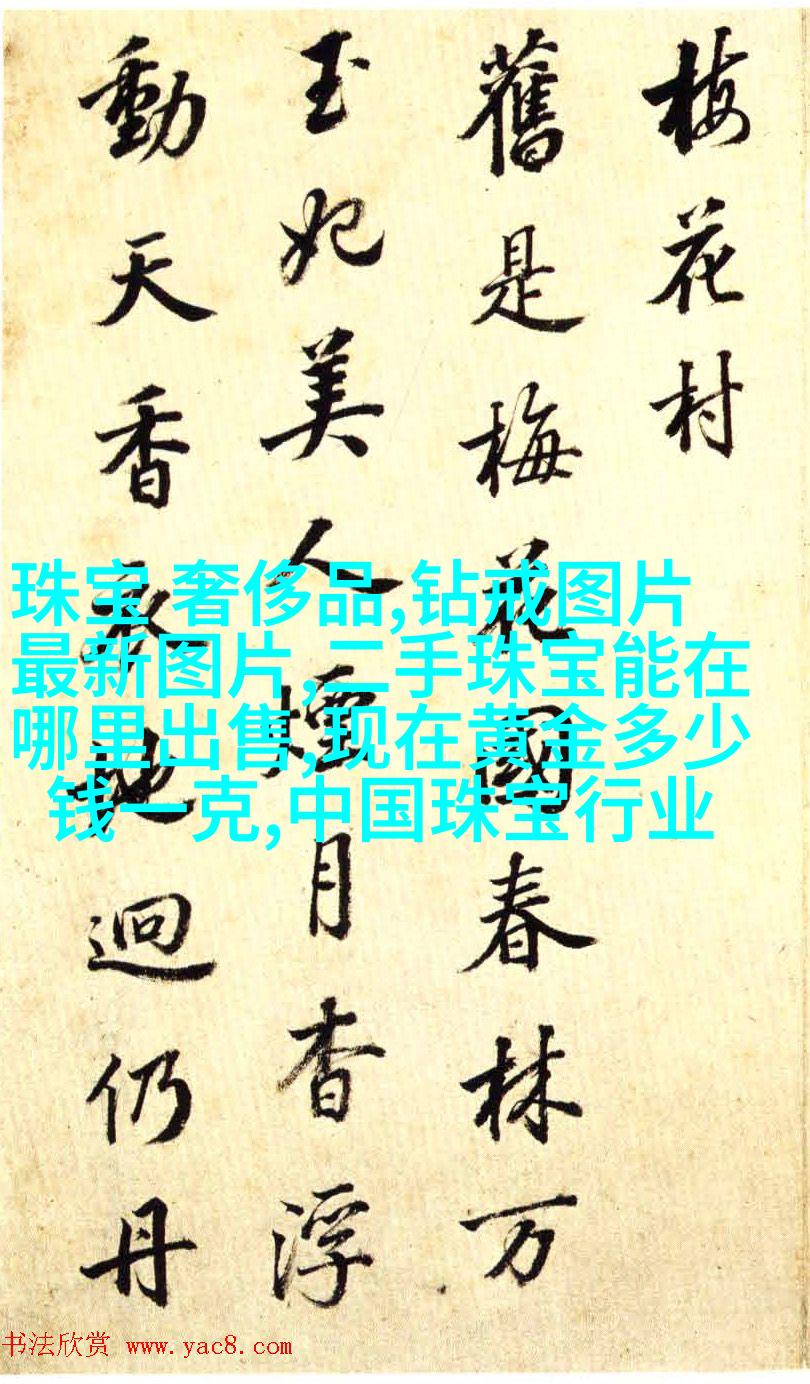 梅花村
舊是梅花國春林万
玉妃美人煙月杳浮
動天香地迥仍丹
珠宝 奢侈品,钻戒图片
最新图片,二手珠宝能在
哪里出售,现在黄金多少
钱一克,中国珠宝行业
书法欣赏 www.yac8.com